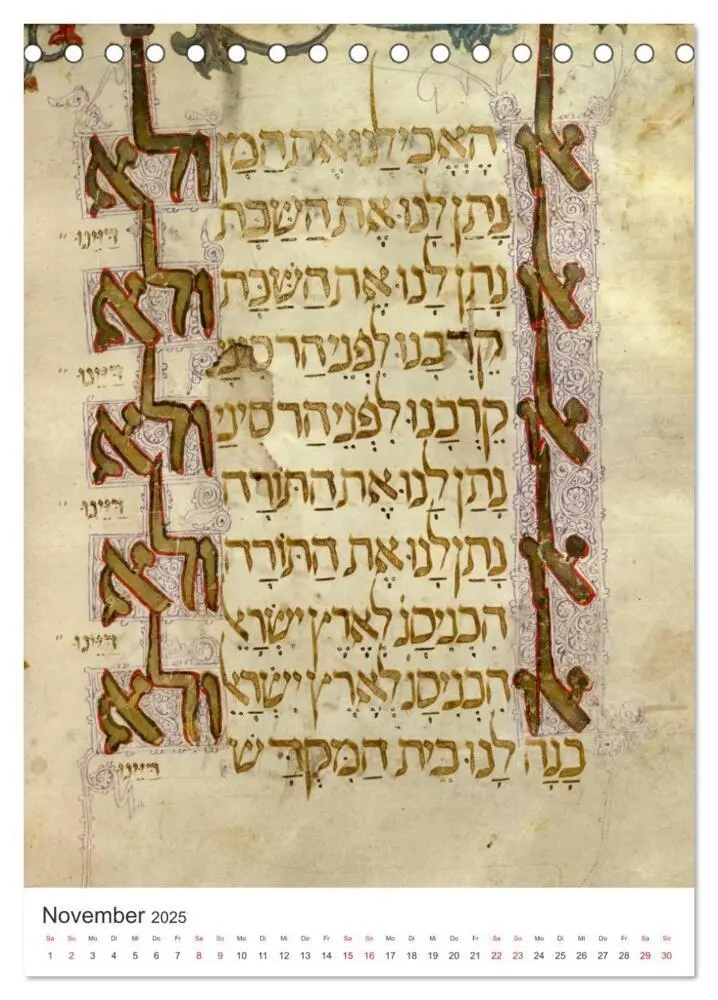 אלו האכילנו את המן ולא
נתן לנו את השבת דיינו
אלו נתן לנו את השבת ולא
קרבנו לפני הר סיני דיינו
אלו קרבנו לפני הר סיני ולא
נתן לנו את התורה דיינו
אלו נתן לנו את התורה ולא
הכניסנו לארץ ישראל דיינו
אלו הכניסנו לארץ ישראל ולא
בנה לנו בית המקדש דיינו
November 2025
Sa So Mo Di Mi Do Fr Sa So Mo Di Mi Do Fr Sa So Mo Di Mi Do Fr Sa So Mo Di Mi Do Fr Sa So
1 2 3 4 5 6 7 8 9 10 11 12 13 14 15 16 17 18 19 20 21 22 23 24 25 26 27 28 29 30